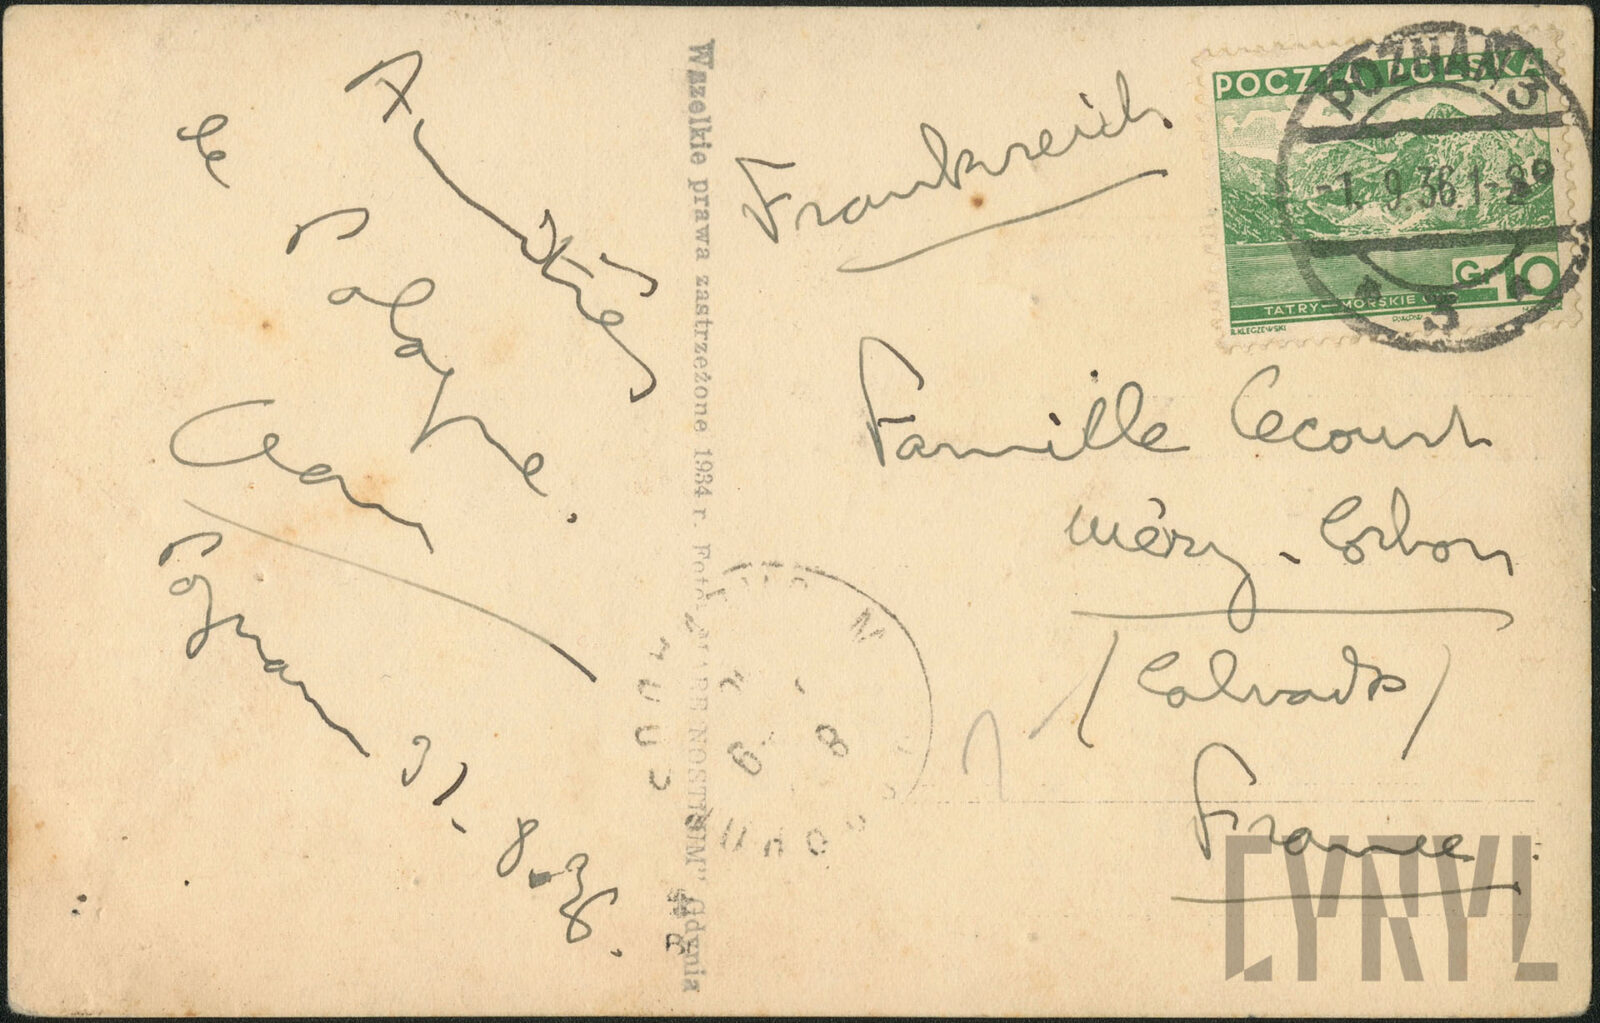 Amitiés
de
Pologne.
Jean
Poznan 31.8.36.
Wszelkie prawa zastrzeżone 1934 r. Foto „MARE NOSTRUM" Gdynia
Frankreich
POCZTA POLSKA
TATRY—MORSKIE OKO
Gr 10
R.KLECZEWSKI
POZNAŃ 3
-1. 9.36.1-
3
Famille Lecourt
Méry-Corbon
(Calvados)
France
CYRYL